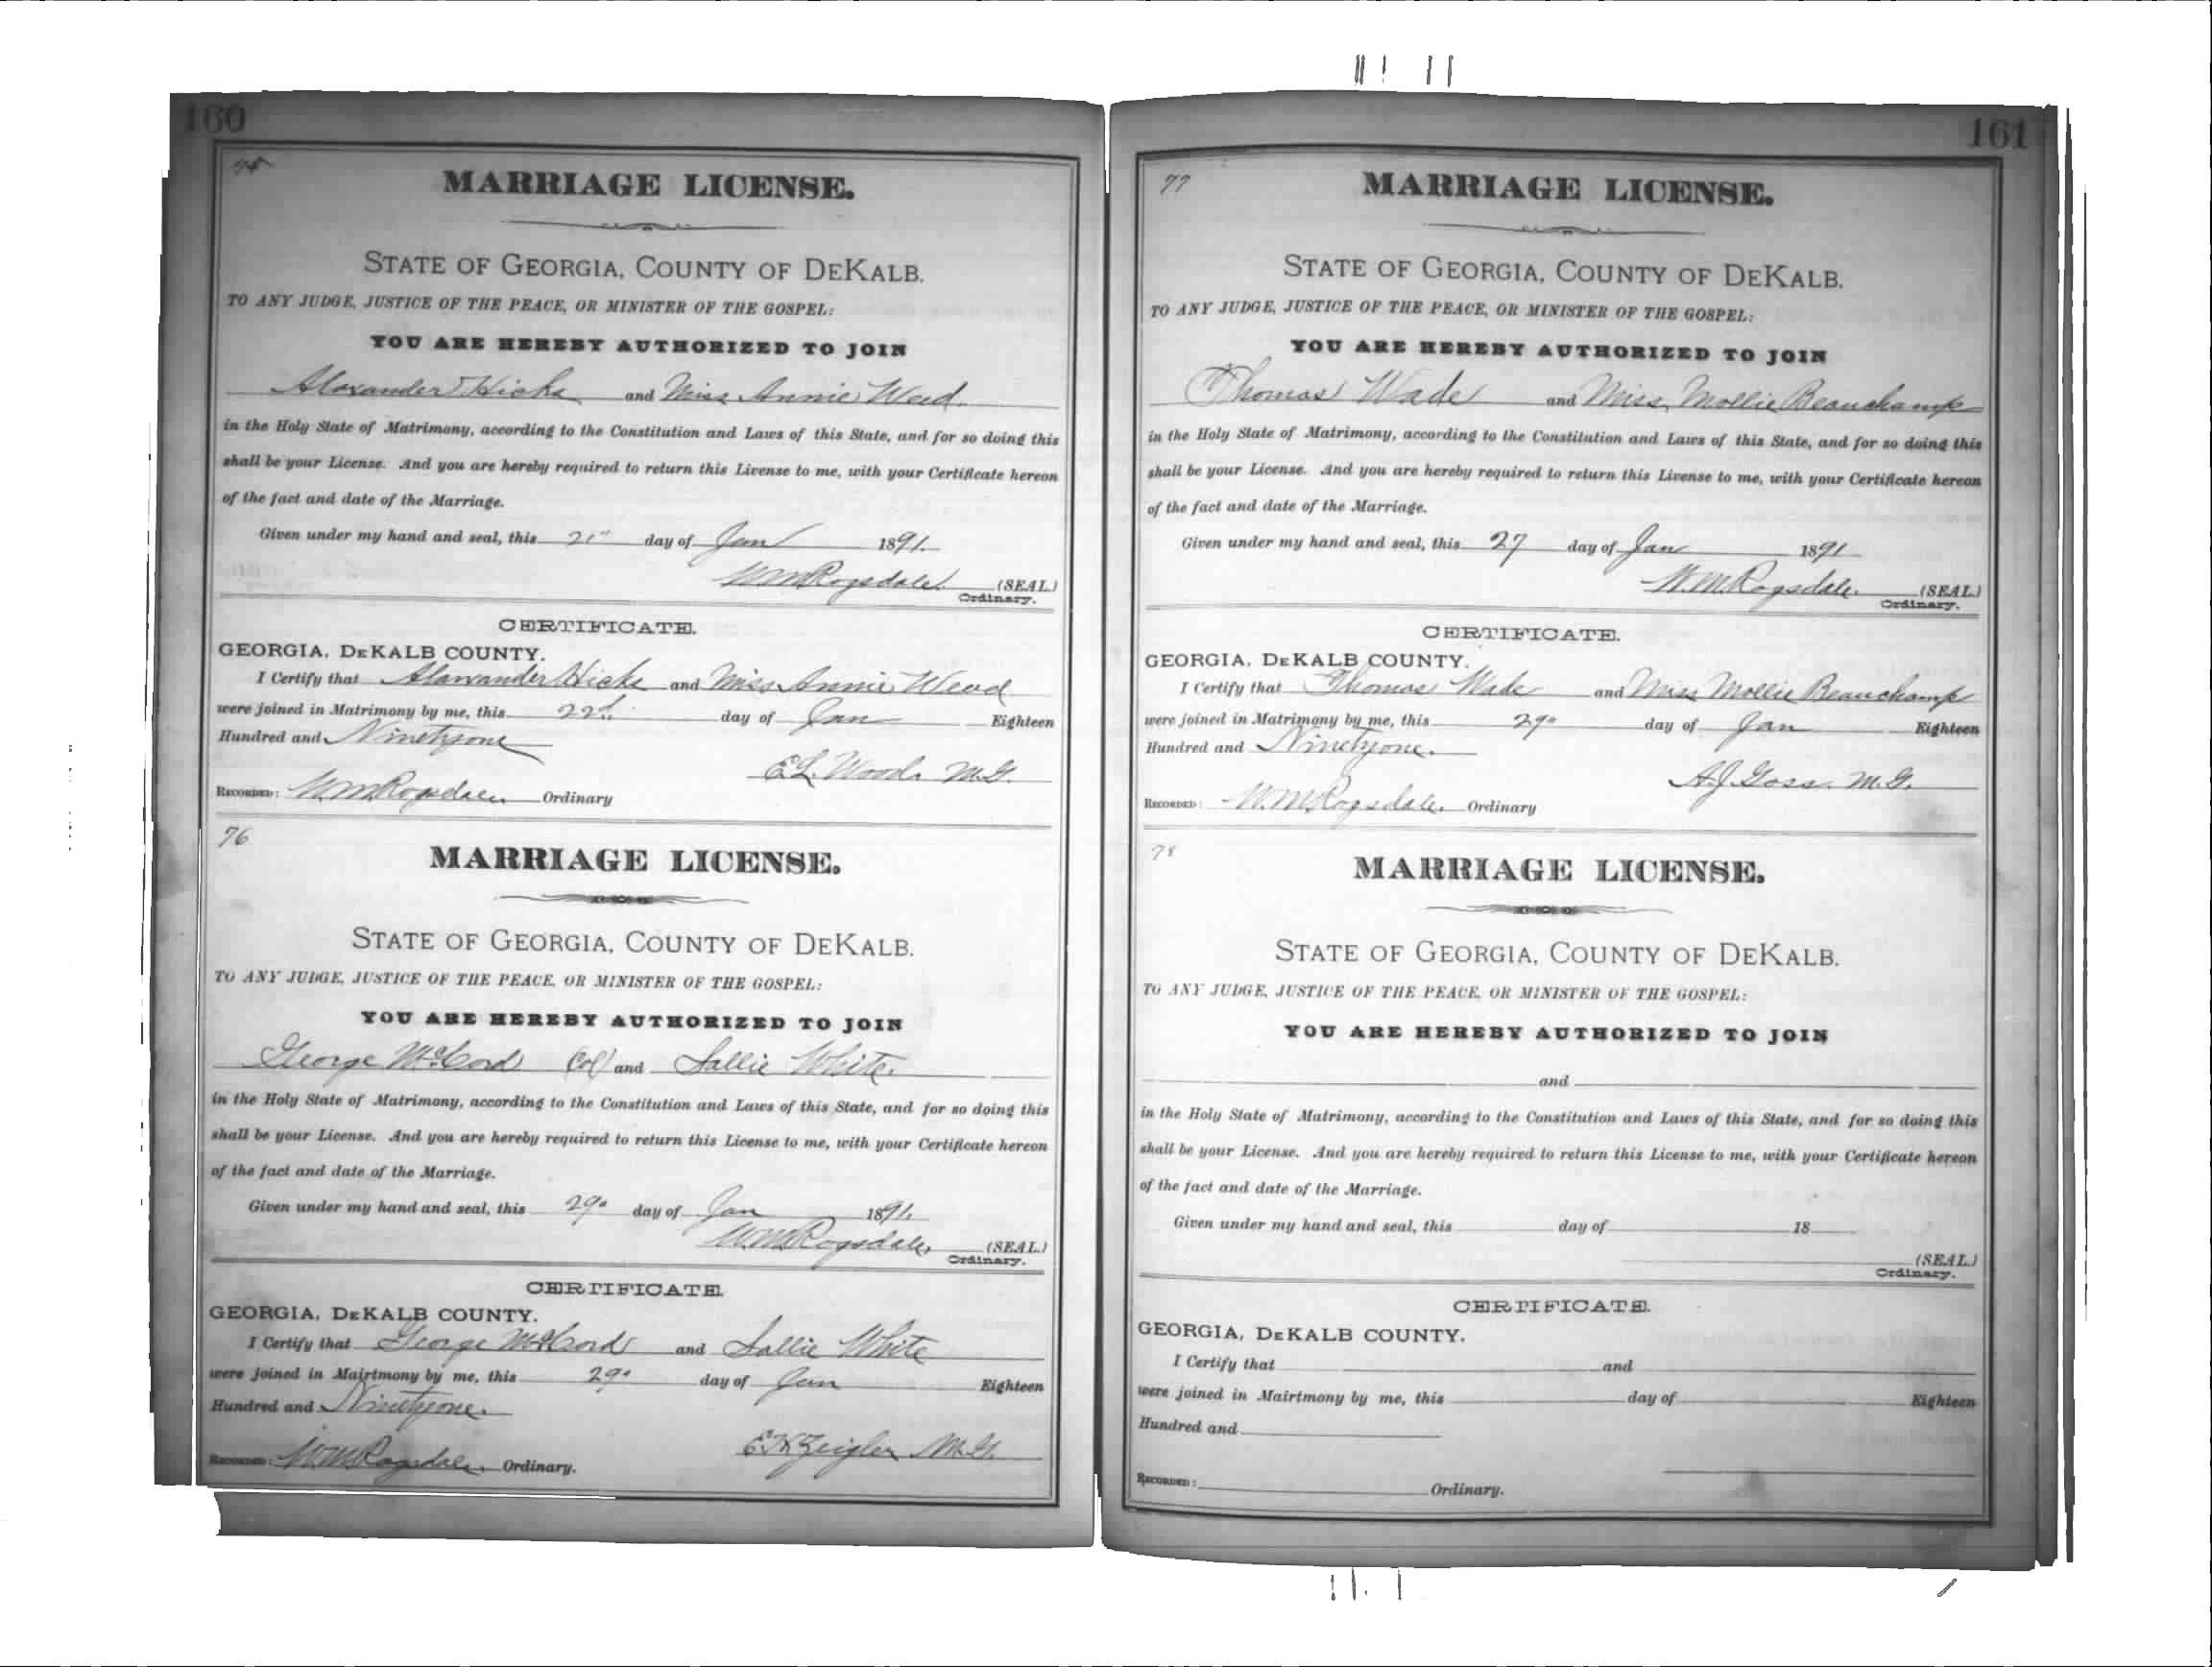 160
75
MARRIAGE LICENSE.
STATE OF GEORGIA, COUNTY OF DEKALB.
TO ANY JUDGE, JUSTICE OF THE PEACE, OR MINISTER OF THE GOSPEL:
YOU ARE HEREBY AUTHORIZED TO JOIN
Alaxander Hicks and Miss Annie Weed.
in the Holy State of Matrimony, according to the Constitution and Laws of this State, and for so doing this
shall be your License. And you are hereby required to return this License to me, with your Certificate hereon
of the fact and date of the Marriage.
Given under my hand and seal, this 21" day of Jan 1891.
W.M.Ragsdale. (SEAL)
Ordinary.
CERTIFICATE.
GEORGIA, DEKALB COUNTY.
I Certify that Alaxander Hicks and Miss Annie Weed
were joined in Matrimony by me, this 22d day of Jan Eighteen
Hundred and Ninetyone
E.L. Wood. M.G.
RECORDED: W.M.Ragsdale. Ordinary
76
MARRIAGE LICENSE.
STATE OF GEORGIA, COUNTY OF DEKALB.
TO ANY JUDGE, JUSTICE OF THE PEACE, OR MINISTER OF THE GOSPEL:
YOU ARE HEREBY AUTHORIZED TO JOIN
George McCord (Col) and Sallie White.
in the Holy State of Matrimony, according to the Constitution and Laws of this State, and for so doing this
shall be your License. And you are hereby required to return this License to me, with your Certificate hereon
of the fact and date of the Marriage.
Given under my hand and seal, this 29" day of Jan 1891.
W.M.Ragsdale, (SEAL)
Ordinary.
CERTIFICATE.
GEORGIA, DEKALB COUNTY.
I Certify that George McCord and Sallie White
were joined in Mairtmony by me, this 29" day of Jan Eighteen
Hundred and Ninetyone.
E.H.Zeigler M.G.
RECORDED: W.M.Ragsdale. Ordinary.
161
77
MARRIAGE LICENSE.
STATE OF GEORGIA, COUNTY OF DEKALB.
TO ANY JUDGE, JUSTICE OF THE PEACE, OR MINISTER OF THE GOSPEL:
YOU ARE HEREBY AUTHORIZED TO JOIN
Thomas Wade and Miss. Mollie Beauchamp
in the Holy State of Matrimony, according to the Constitution and Laws of this State, and for so doing this
shall be your License. And you are hereby required to return this License to me, with your Certificate hereon
of the fact and date of the Marriage.
Given under my hand and seal, this 27 day of Jan 1891
W.M.Ragsdale. (SEAL)
Ordinary.
CERTIFICATE.
GEORGIA, DEKALB COUNTY.
I Certify that Thomas Wade and Miss Mollie Beauchamp
were joined in Matrimony by me, this 29" day of Jan Eighteen
Hundred and Ninetyone.
A.J.Goss. M.G.
RECORDED: W.M.Ragsdale. Ordinary
78
MARRIAGE LICENSE.
STATE OF GEORGIA, COUNTY OF DEKALB.
TO ANY JUDGE, JUSTICE OF THE PEACE, OR MINISTER OF THE GOSPEL:
YOU ARE HEREBY AUTHORIZED TO JOIN
and
in the Holy State of Matrimony, according to the Constitution and Laws of this State, and for so doing this
shall be your License. And you are hereby required to return this License to me, with your Certificate hereon
of the fact and date of the Marriage.
Given under my hand and seal, this day of 18
(SEAL)
Ordinary.
CERTIFICATE.
GEORGIA, DEKALB COUNTY.
I Certify that and
were joined in Mairtmony by me, this day of Eighteen
Hundred and
RECORDED: Ordinary.